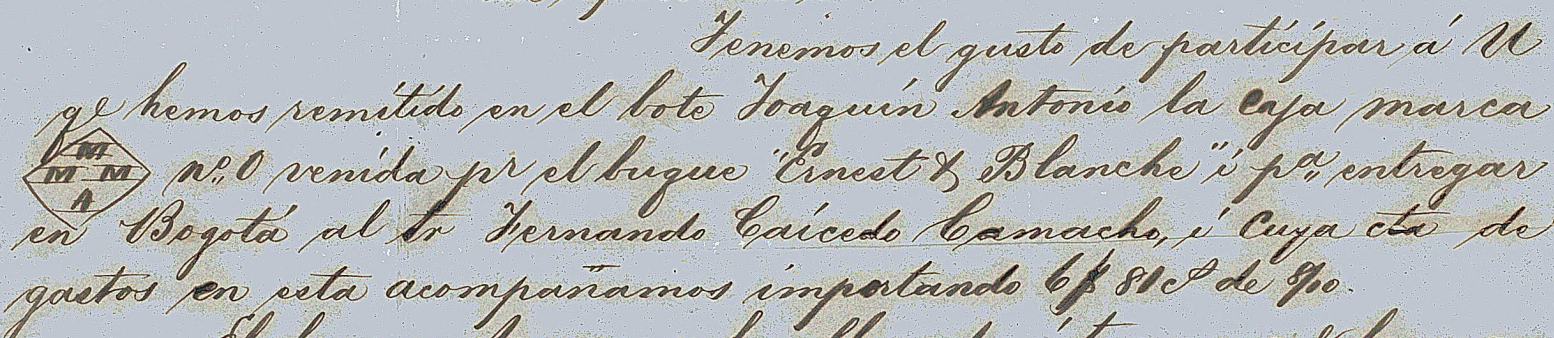 Tenemos el gusto de participar á U
qe hemos remitido en el bote Joaquin Antonio la caja marca
M
M M
A
nº 0 venida pr el buque "Ernest & Blanche" i pª entregar
en Bogotá al Sr Fernando Caicedo Camacho, i cuya cta de
gastos en esta acompañamos importando 6$ 80 cs de 8/00.